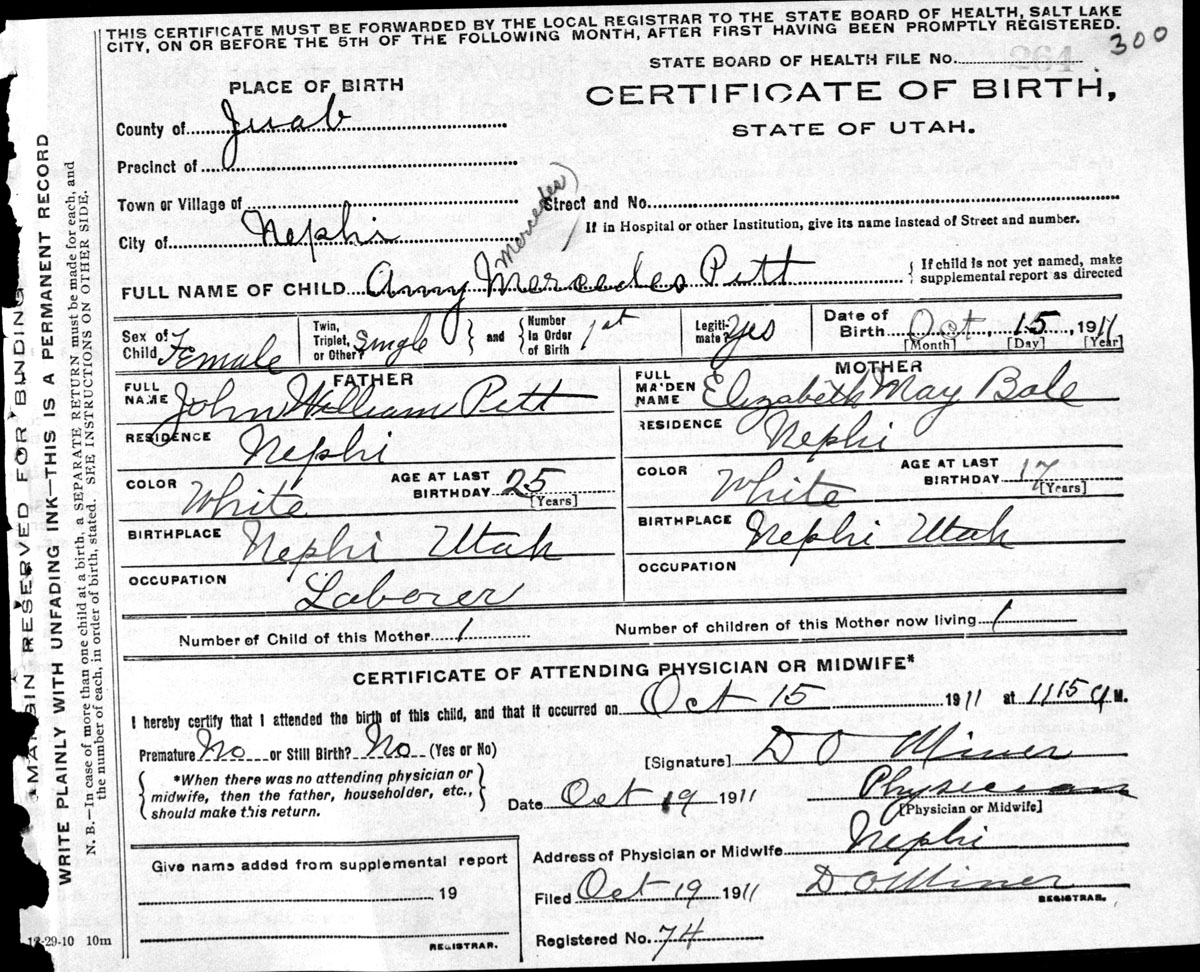 THIS CERTIFICATE MUST BE FORWARDED BY THE LOCAL REGISTRAR TO THE STATE BOARD OF HEALTH, SALT LAKE
CITY, ON OR BEFORE THE 5TH OF THE FOLLOWING MONTH, AFTER FIRST HAVING BEEN PROMPTLY REGISTERED.
300
STATE BOARD OF HEALTH FILE No. 264
PLACE OF BIRTH
CERTIFICATE OF BIRTH,
STATE OF UTAH.
County of Juab
Precinct of
Town or Village of
Street and No.
City of Nephi
If in Hospital or other Institution, give its name instead of Street and number.
Mercedes
FULL NAME OF CHILD Amy Mercedes Pitt
{ If child is not yet named, make
supplemental report as directed
Sex of Child Female
Twin, Triplet, or Other? Single } and { Number In Order of Birth 1st
Legiti-mate? Yes
Date of Birth Oct, 15, 1911
[Month] [Day] [Year]
FATHER
FULL NAME John William Pitt
RESIDENCE Nephi
COLOR White
AGE AT LAST BIRTHDAY 25
[Years]
BIRTHPLACE Nephi Utah
OCCUPATION Laborer
MOTHER
FULL MAIDEN NAME Elizabeth May Bale
RESIDENCE Nephi
COLOR White
AGE AT LAST BIRTHDAY 17
[Years]
BIRTHPLACE Nephi Utah
OCCUPATION
Number of Child of this Mother 1
Number of children of this Mother now living 1
CERTIFICATE OF ATTENDING PHYSICIAN OR MIDWIFE*
I hereby certify that I attended the birth of this child, and that it occurred on Oct 15 1911 at 1115 a M.
Premature No or Still Birth? No (Yes or No)
{ *When there was no attending physician or
midwife, then the father, householder, etc.,
should make this return. }
[Signature] D O Miner
Date Oct 19 1911
Physician
[Physician or Midwife]
Address of Physician or Midwife Nephi
Filed Oct 19 1911 D O Miner
REGISTRAR.
Registered No. 74
Give name added from supplemental report
19
REGISTRAR.
12-29-10 10m
MARGIN RESERVED FOR BINDING
WRITE PLAINLY WITH UNFADING INK—THIS IS A PERMANENT RECORD
N. B.—In case of more than one child at a birth, a SEPARATE RETURN must be made for each, and
the number of each, in order of birth, stated. SEE INSTRUCTIONS ON OTHER SIDE.